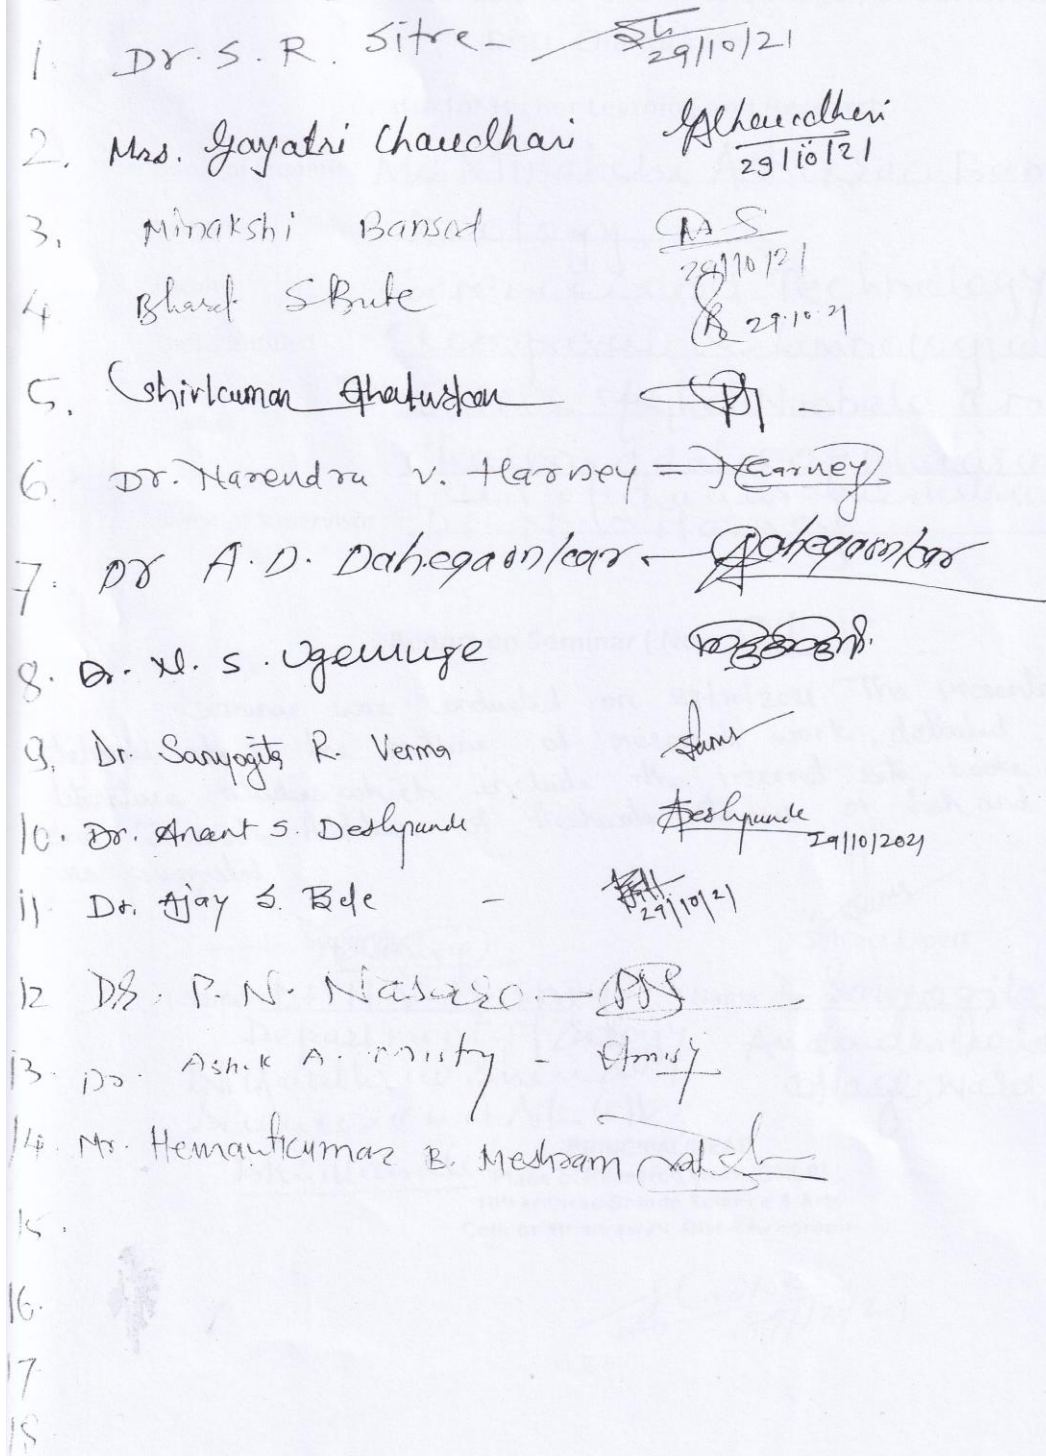 1. Dr. S. R. Sitre - 29/10/21
2. Mrs. Gayatri Chaudhari GAChaudhari 29/10/21
3. Minakshi Bansod MS 29/10/21
4. Bharat S Bute 29.10.21
5. Shivkumar
6. Dr. Narendra V. Harney = NHarney
7. Dr A. D. Dahegaonkar - ADahegaonkar
8. Dr. N. S. Ugemuge
9. Dr. Sanyogita R. Verma
10. Dr. Anant S. Deshpande Deshpande 29/10/2021
11 Dr. Ajay S. Bele - 29/10/21
12 Dr. P. N. Nasare. - PN
13. Dr. Ashok A. Mistry -
14. Mr. Hemantkumar B. Meshram
15.
16.
17
18